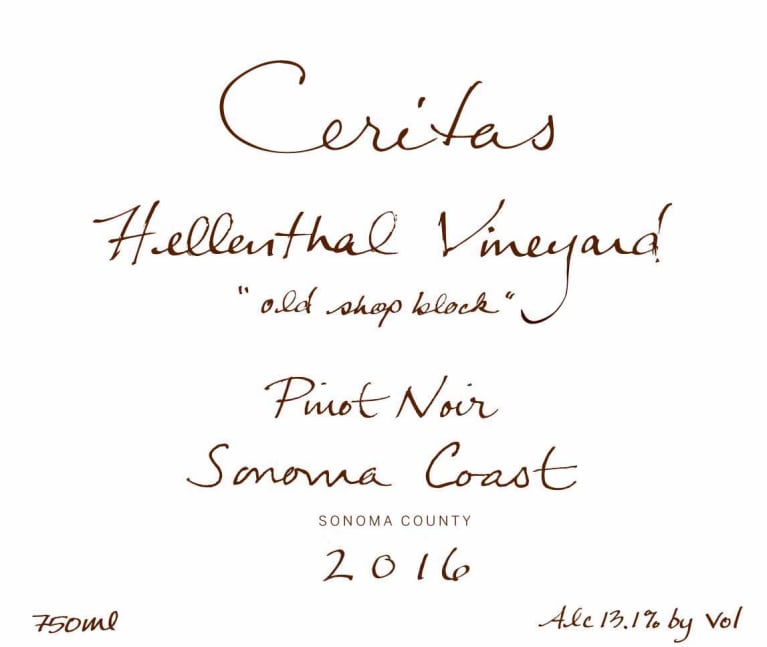 Ceritas
Hellenthal Vineyard
"old shop block"
Pinot Noir
Sonoma Coast
SONOMA COUNTY
2016
750ml
Alc 13.1% by Vol